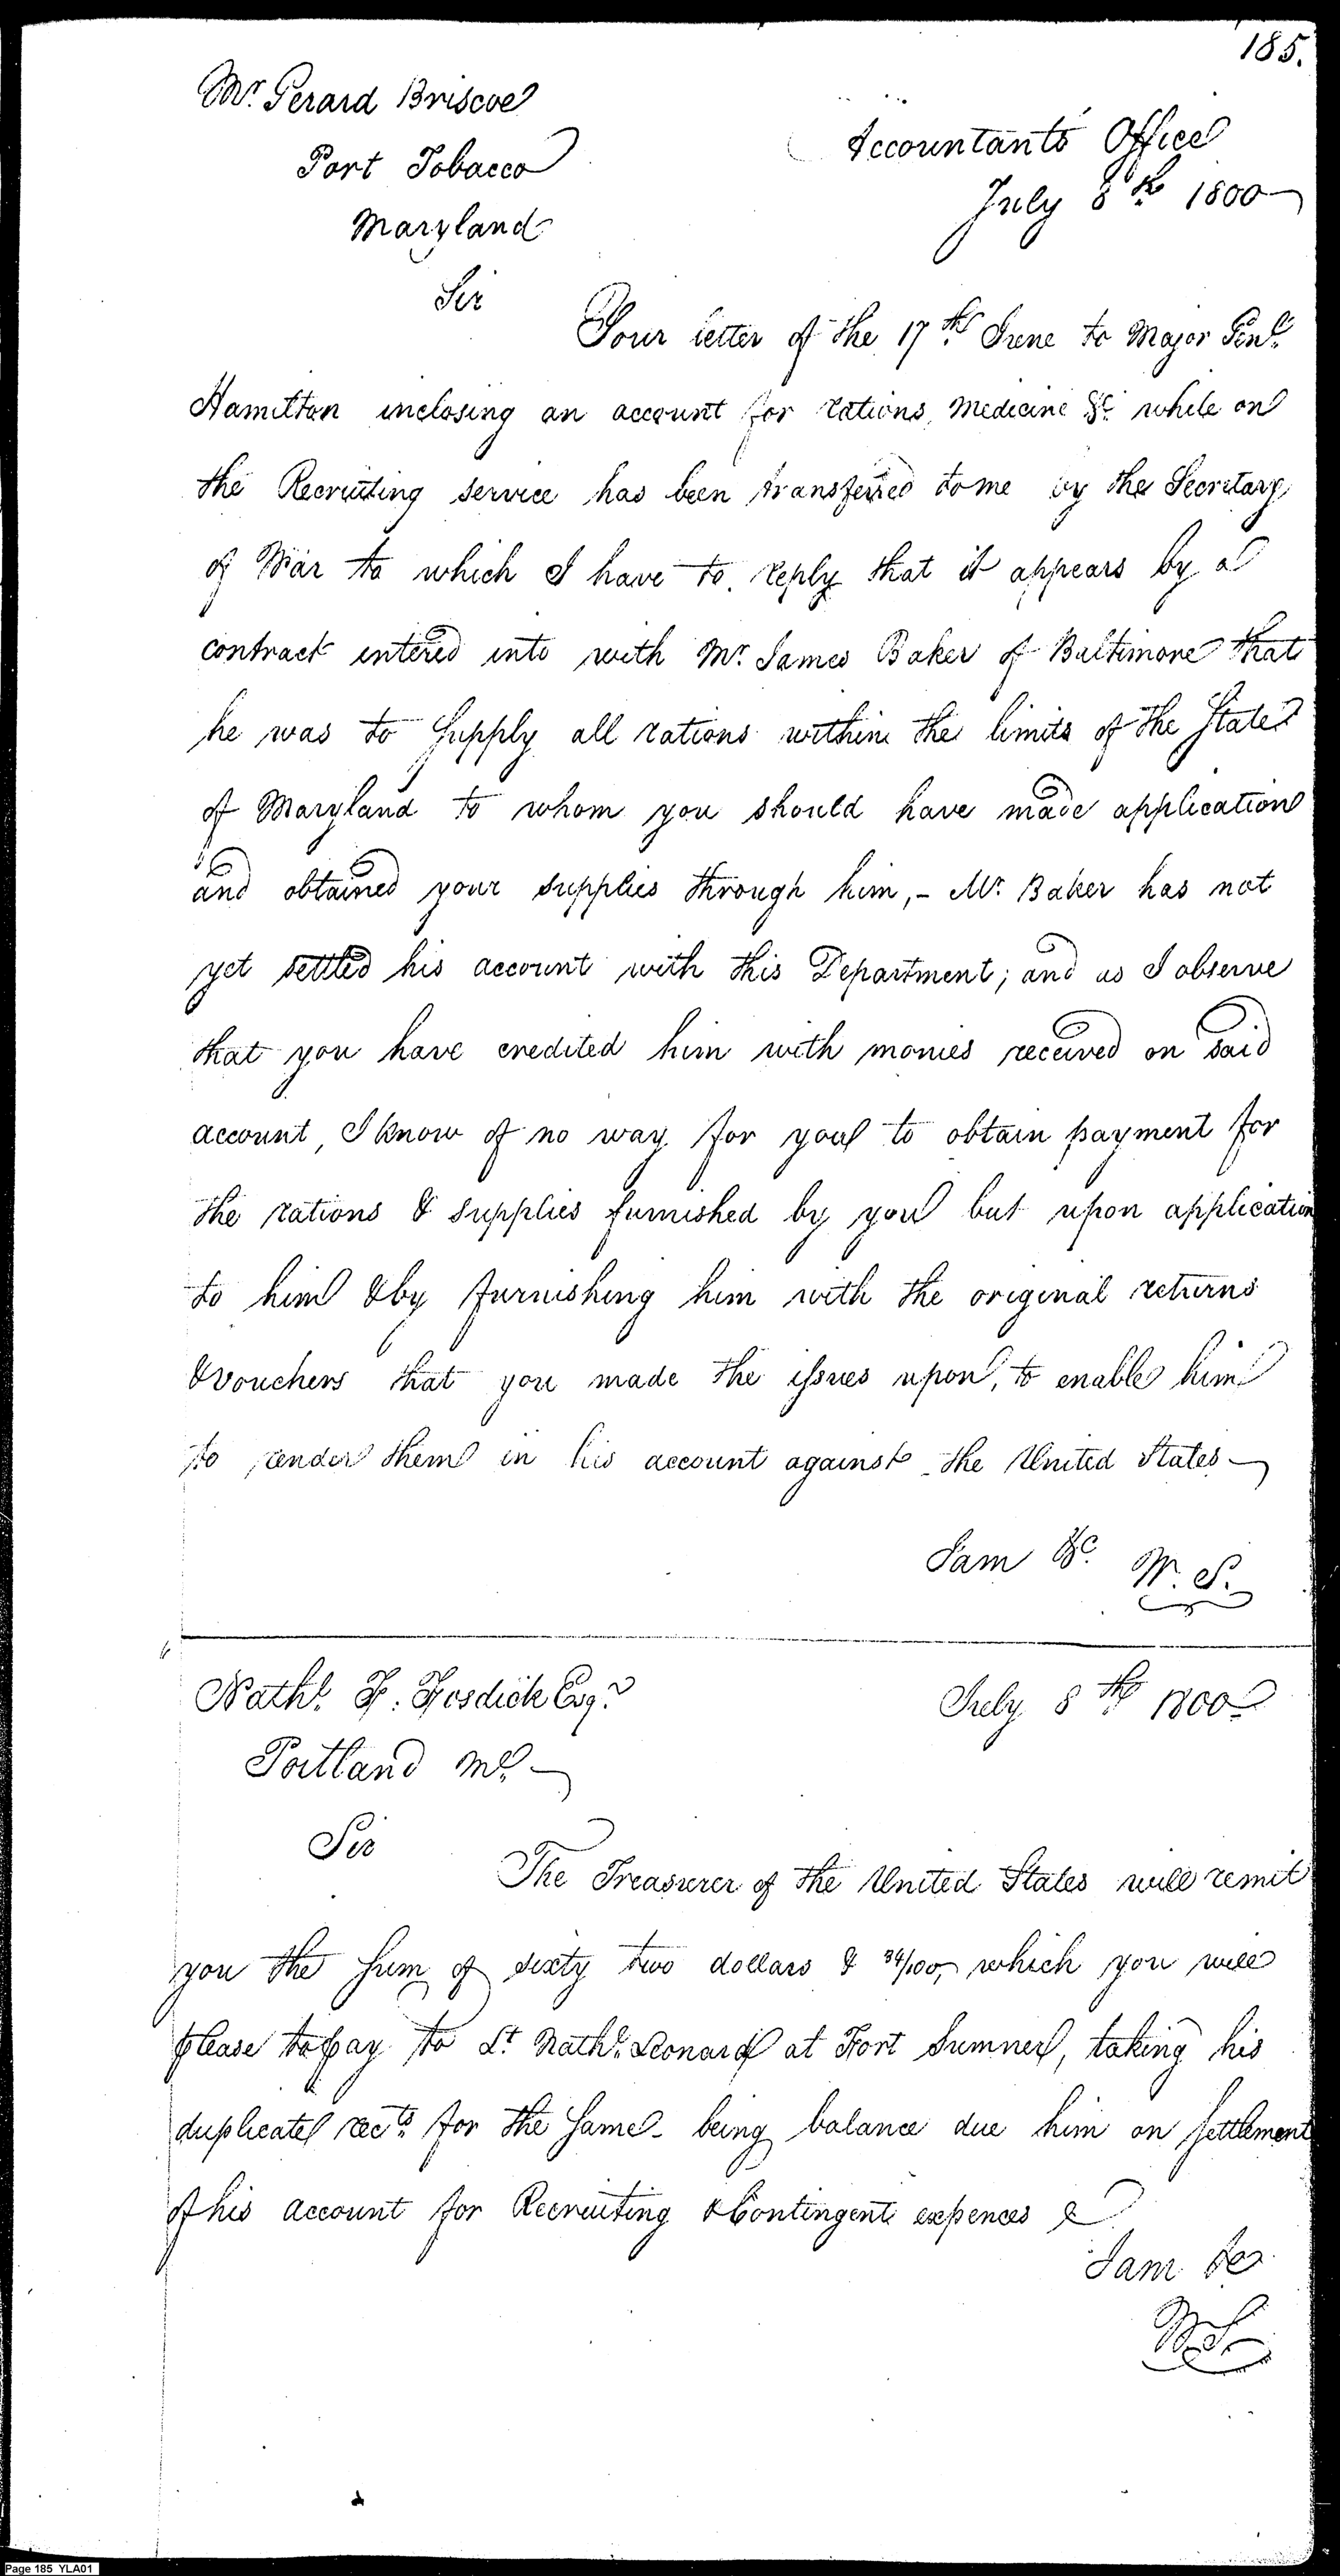 185.
Mr. Gerard Briscoe
Port Tobacco
Maryland
Accountants Office
July 8th 1800
Sir
Your letter of the 17th June to Major Genl.
Hamilton inclosing an account for rations, medicine &c. while on
the Recruiting service has been transferred to me by the Secretary
of War to which I have to reply that it appears by a
contract entered into with Mr. James Baker of Baltimore that
he was to supply all rations within the limits of the State
of Maryland to whom you should have made application
and obtained your supplies through him, - Mr. Baker has not
yet settled his account with this Department; and as I observe
that you have credited him with monies received on said
account, I know of no way for you to obtain payment for
the rations & supplies furnished by you but upon application
to him & by furnishing him with the original returns
& vouchers that you made the issues upon, to enable him
to render them in his account against the United States
I am &c. W. S.
Nathl. F. Fosdick Esqr.
Portland Me.
July 8th 1800
Sir
The Treasurer of the United States will remit
you the sum of sixty two dollars & 34/100, which you will
please to pay to Lt. Nathl. Leonard at Fort Sumner, taking his
duplicate rects. for the same - being balance due him on settlement
of his account for Recruiting & Contingent expences &
I am &c
W. S.
Page 185 YLA01